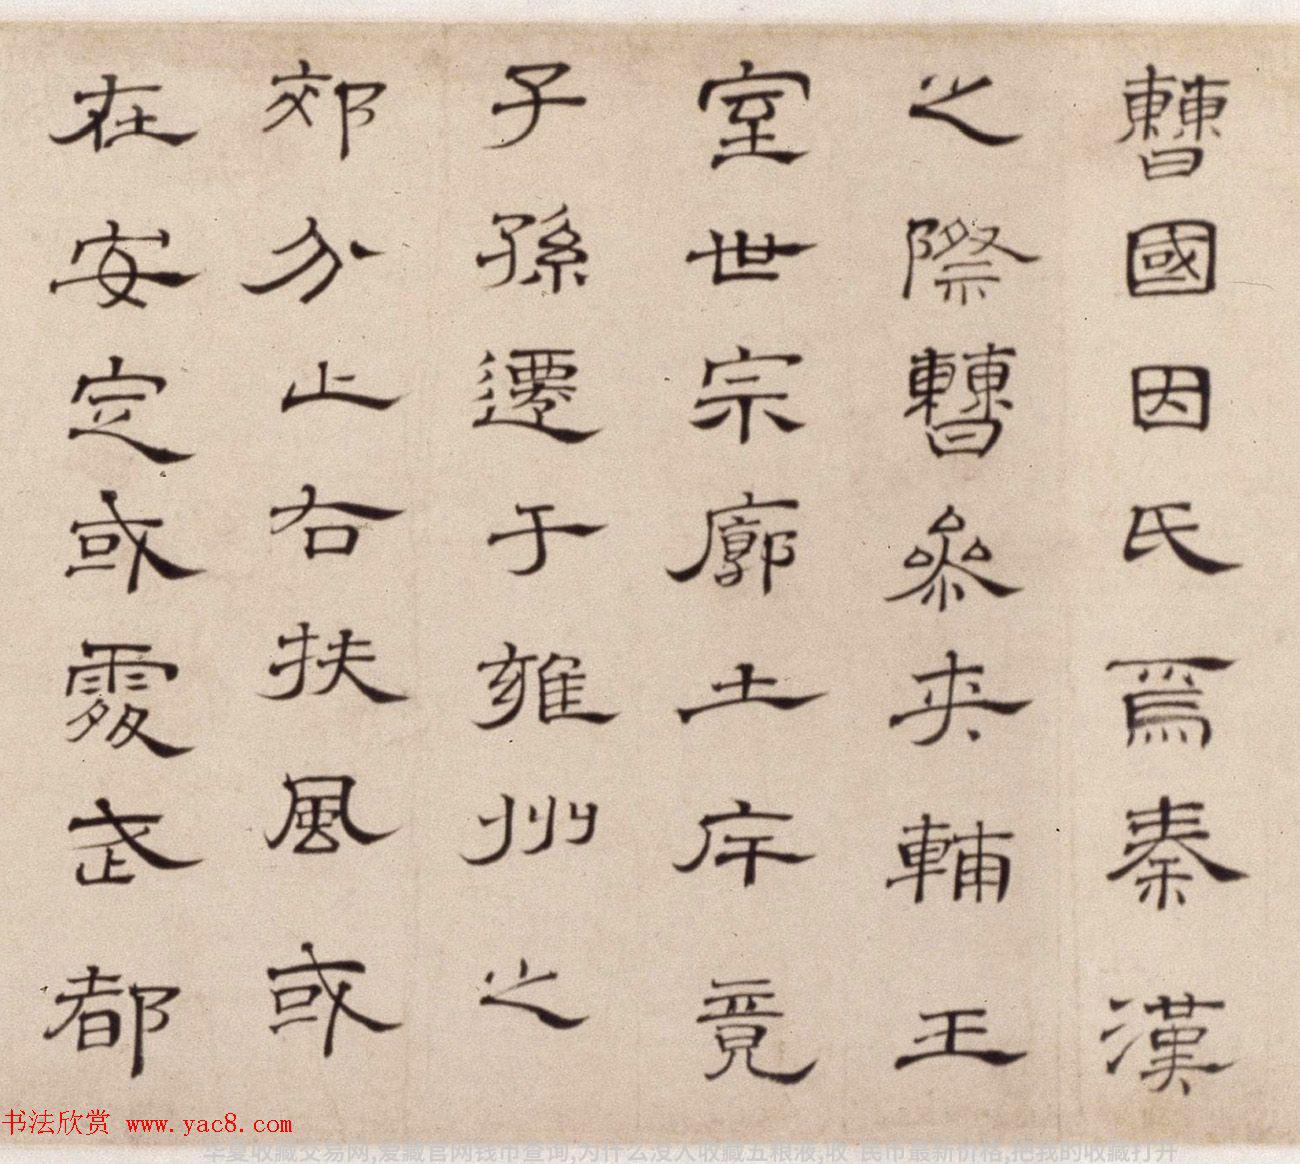 曹國因氏焉秦漢
之際曹參夾輔王
室世宗廓土庍竟
子孫遷于雍州之
郊分止右扶風或
在安定或處武都
书法欣赏 www.yac8.com
华夏收藏交易网,爱藏官网钱币查询,为什么没人收藏五粮液,收 民币最新价格,把我的收藏打开